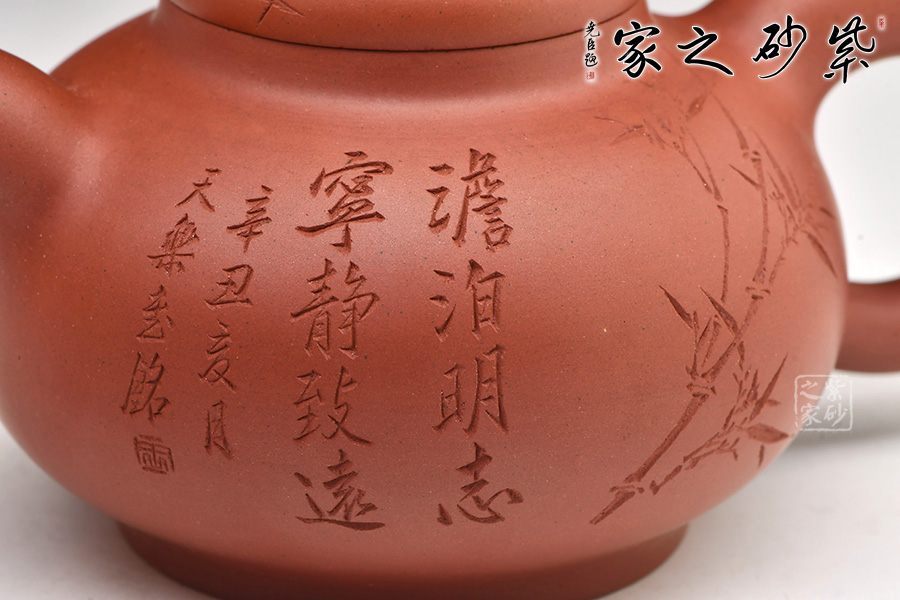 紫砂之家
澹泊明志
寧静致遠
辛丑亥月
天樂銘
紫砂
之家